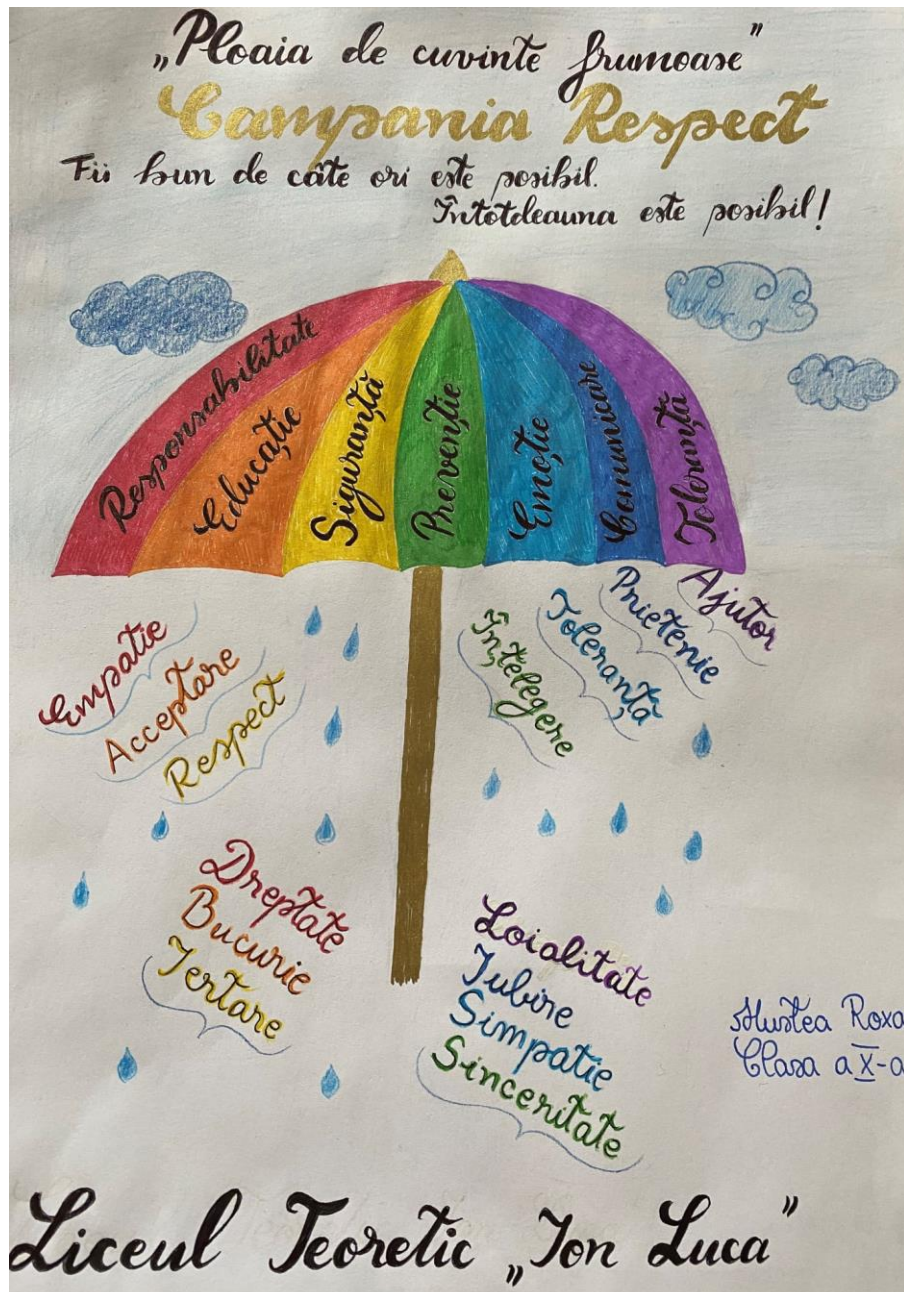 „Ploaia de cuvinte frumoase”
Campania Respect
Fii bun de câte ori este posibil.
Întotdeauna este posibil!
Responsabilitate
Educație
Siguranță
Prevenție
Emoție
Comunicare
Toleranță
Empatie
Acceptare
Respect
Înțelegere
Toleranță
Prietenie
Ajutor
Dreptate
Bucurie
Iertare
Loialitate
Iubire
Simpatie
Sinceritate
Roxa
Clasa a X-a
Liceul Teoretic „Ion Luca”